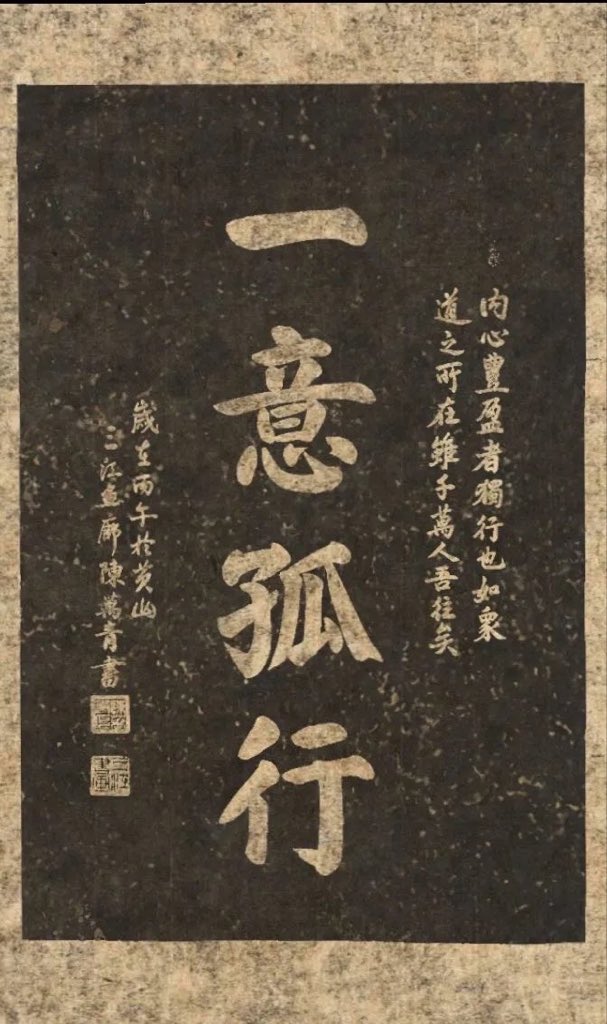 內心豐盈者獨行也如眾
道之所在雖千萬人吾往矣
一意孤行
歲在丙午於黃山
三江畫廊陳萬青書